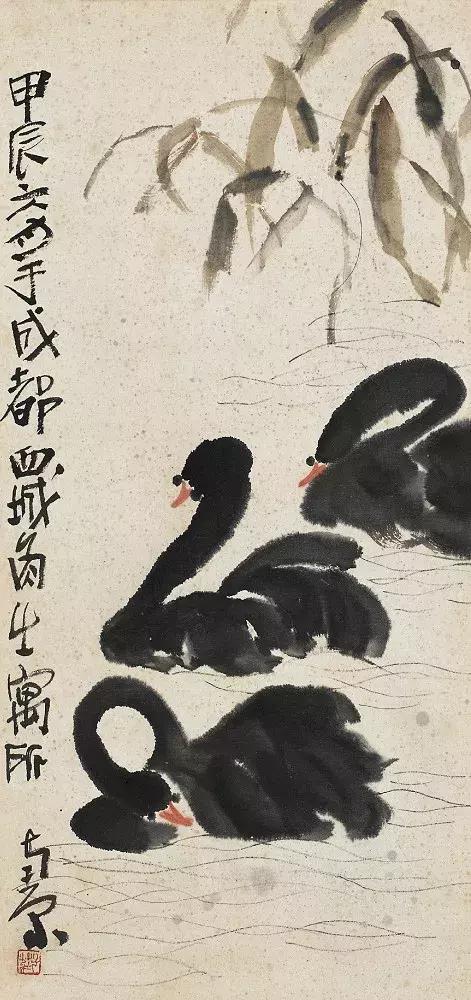 甲辰六月于成都西城角生寓所